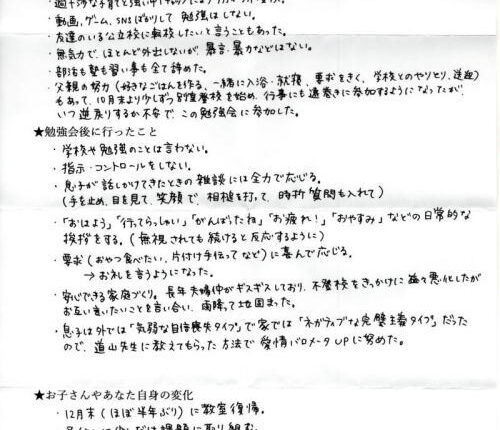 ・動画、ゲーム、SNSばかりして 勉強はしない。
・友達のいる公立校に転校したいと言うこともあった。
・無気力で、ほとんど外出しないが、暴言・暴力などはない。
・部活も塾も習い事も全て辞めた。
・父親の努力(好きなごはんを作る、一緒に入浴・就寝、要求をきく、学校とのやりとり、送迎)
もあって、10月末より少しずつ別室登校を始め、行事にも遠巻きに参加するようになったが、
いつ逆戻りするか不安で、この勉強会に参加した。
★勉強会後に行ったこと
・学校や勉強のことは言わない。
・指示・コントロールをしない。
・息子が話しかけてきたときの雑談には全力で応じる。
(手を止め、目を見て、笑顔で、相槌を打って、時折質問も入れて)
・「おはよう」「行ってらっしゃい」「がんばったね」「お疲れ!」「おやすみ」などの日常的な
挨拶をする。(無視されても続けると反応するように)
・要求(おやつ食べたい、片付け手伝ってなど)に喜んで応じる。
→お礼を言うようになった。
・安心できる家庭づくり。長年夫婦仲がギスギスしており、不登校をきっかけに益々悪化したが
お互い言いたいことを言い合い、雨降って地固まった。
・息子は外では「気弱な自信喪失タイプ」で家では「ネガティブな完璧主義タイプ」だった
ので、道山先生に教えてもらった方法で愛情バロメータUPに努めた。
★お子さんやあなた自身の変化
・12月末(ほぼ半年ぶり)に教室復帰。